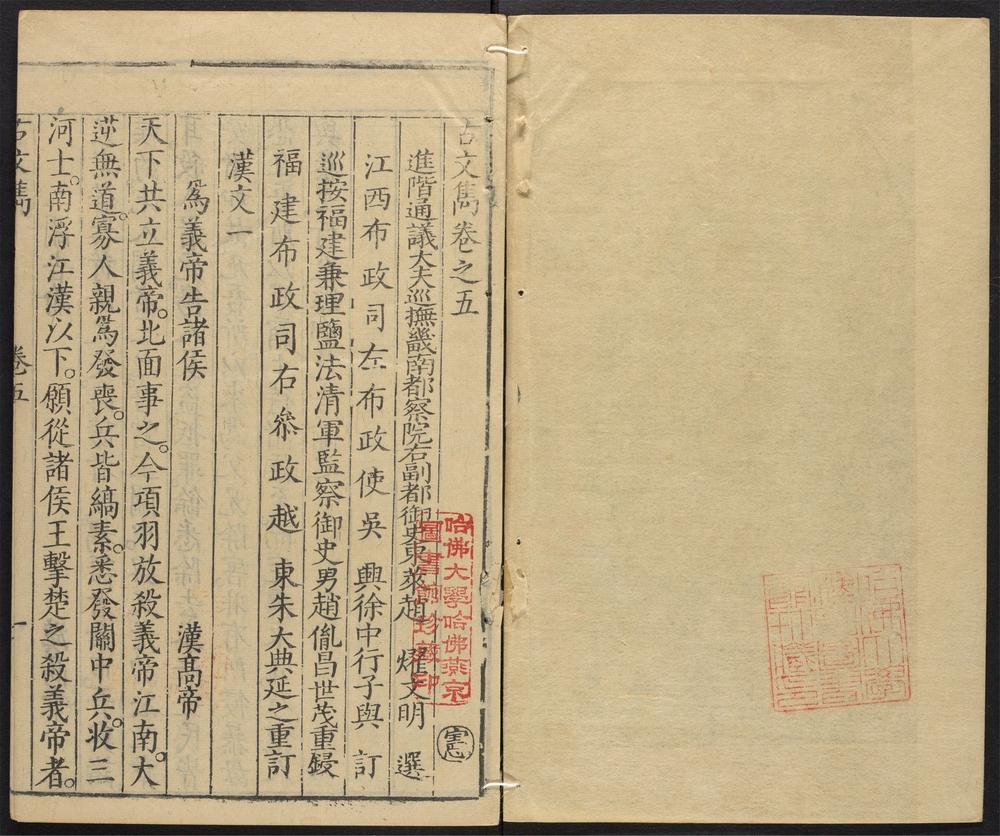 古文雋卷之五
進階通議大夫巡撫畿南都察院右副都御史東萊趙 燿文明 選
江西布政司左布政使吳 興徐中行子與 訂
巡按福建兼理鹽法清軍監察御史男趙胤昌世茂重鋟
福建布政司右叅政越 東朱大典延之重訂
漢文一
爲義帝告諸侯 漢高帝
天下共立義帝。北面事之。今項羽放殺義帝江南。大
逆無道。寡人親爲發喪。兵皆縞素。悉發關中兵。收三
河士。南浮江漢以下。願從諸侯王擊楚之殺義帝者。
古文雋 卷五 一
哈佛大學哈佛燕京
圖書館珍藏印